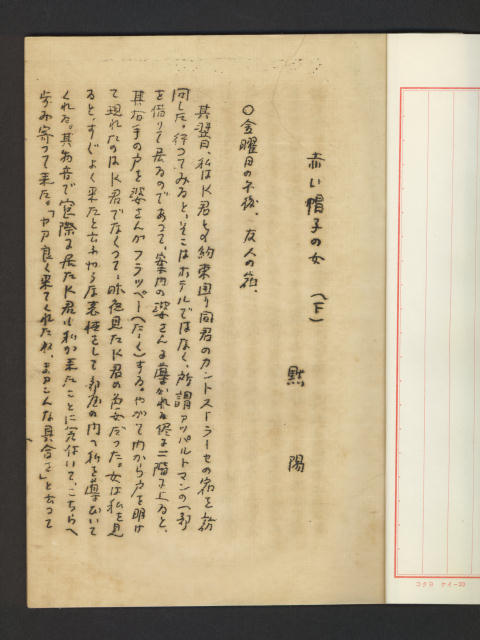 赤い帽子の女 (下)
黙陽
○金曜日の午後、友人の宿、
其翌日、私はK君との約束通り同君のカントストラーセの宿を訪
問した。行つてみると、そこはホテルではなく、所謂アツパルトマンの一部
を借りて居るのであつて、案内の婆さんに導かれ二階に上ると、
其右手の戸を婆さんがフラツペー(たゝく)する。やがて内から戸を明け
て現れたのはK君でなくつて、昨夜見たK君の色女だつた。女は私を見
ると、すぐよく来たと云ふやうな表情をして部屋の内へ私を導いて
くれる。其物音で窓際に居たK君も私が来たことに気付いて、こちらへ
歩み寄つて来た。「ヤア良く来てくれたね、まアこんな具合さ」と云つて
コクヨ ケイ-20